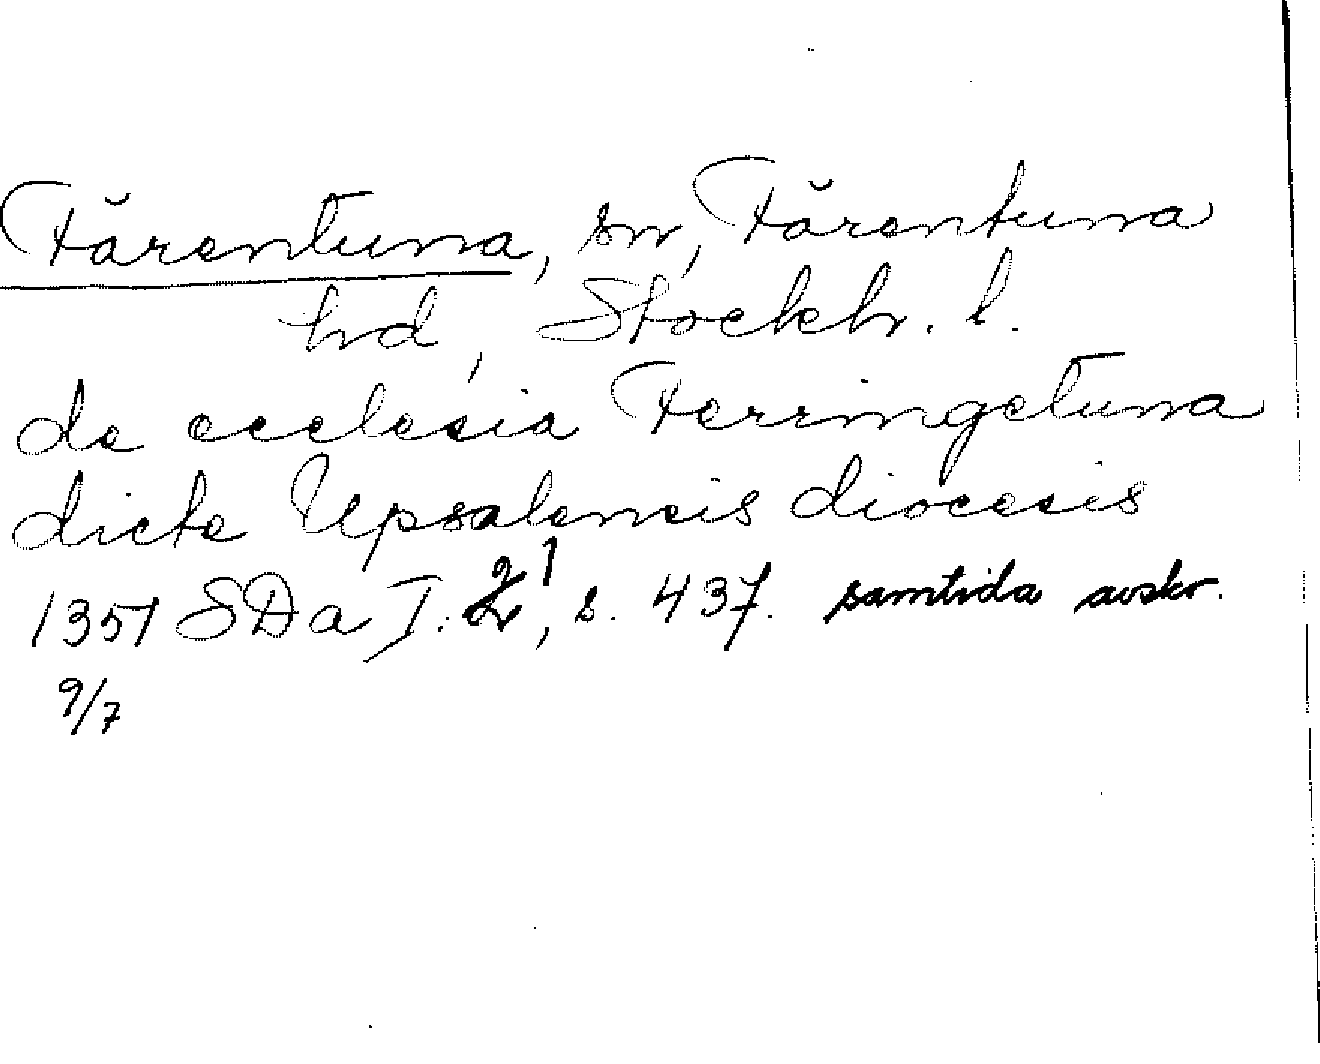 Färentuna, sn, Färentuna
hd, Stockh. l.
de ecclesia Ferringetuna
dicte Upsalensis diocesis
1351 SDa I. 2¹, s. 437. samtida avskr.
9/7